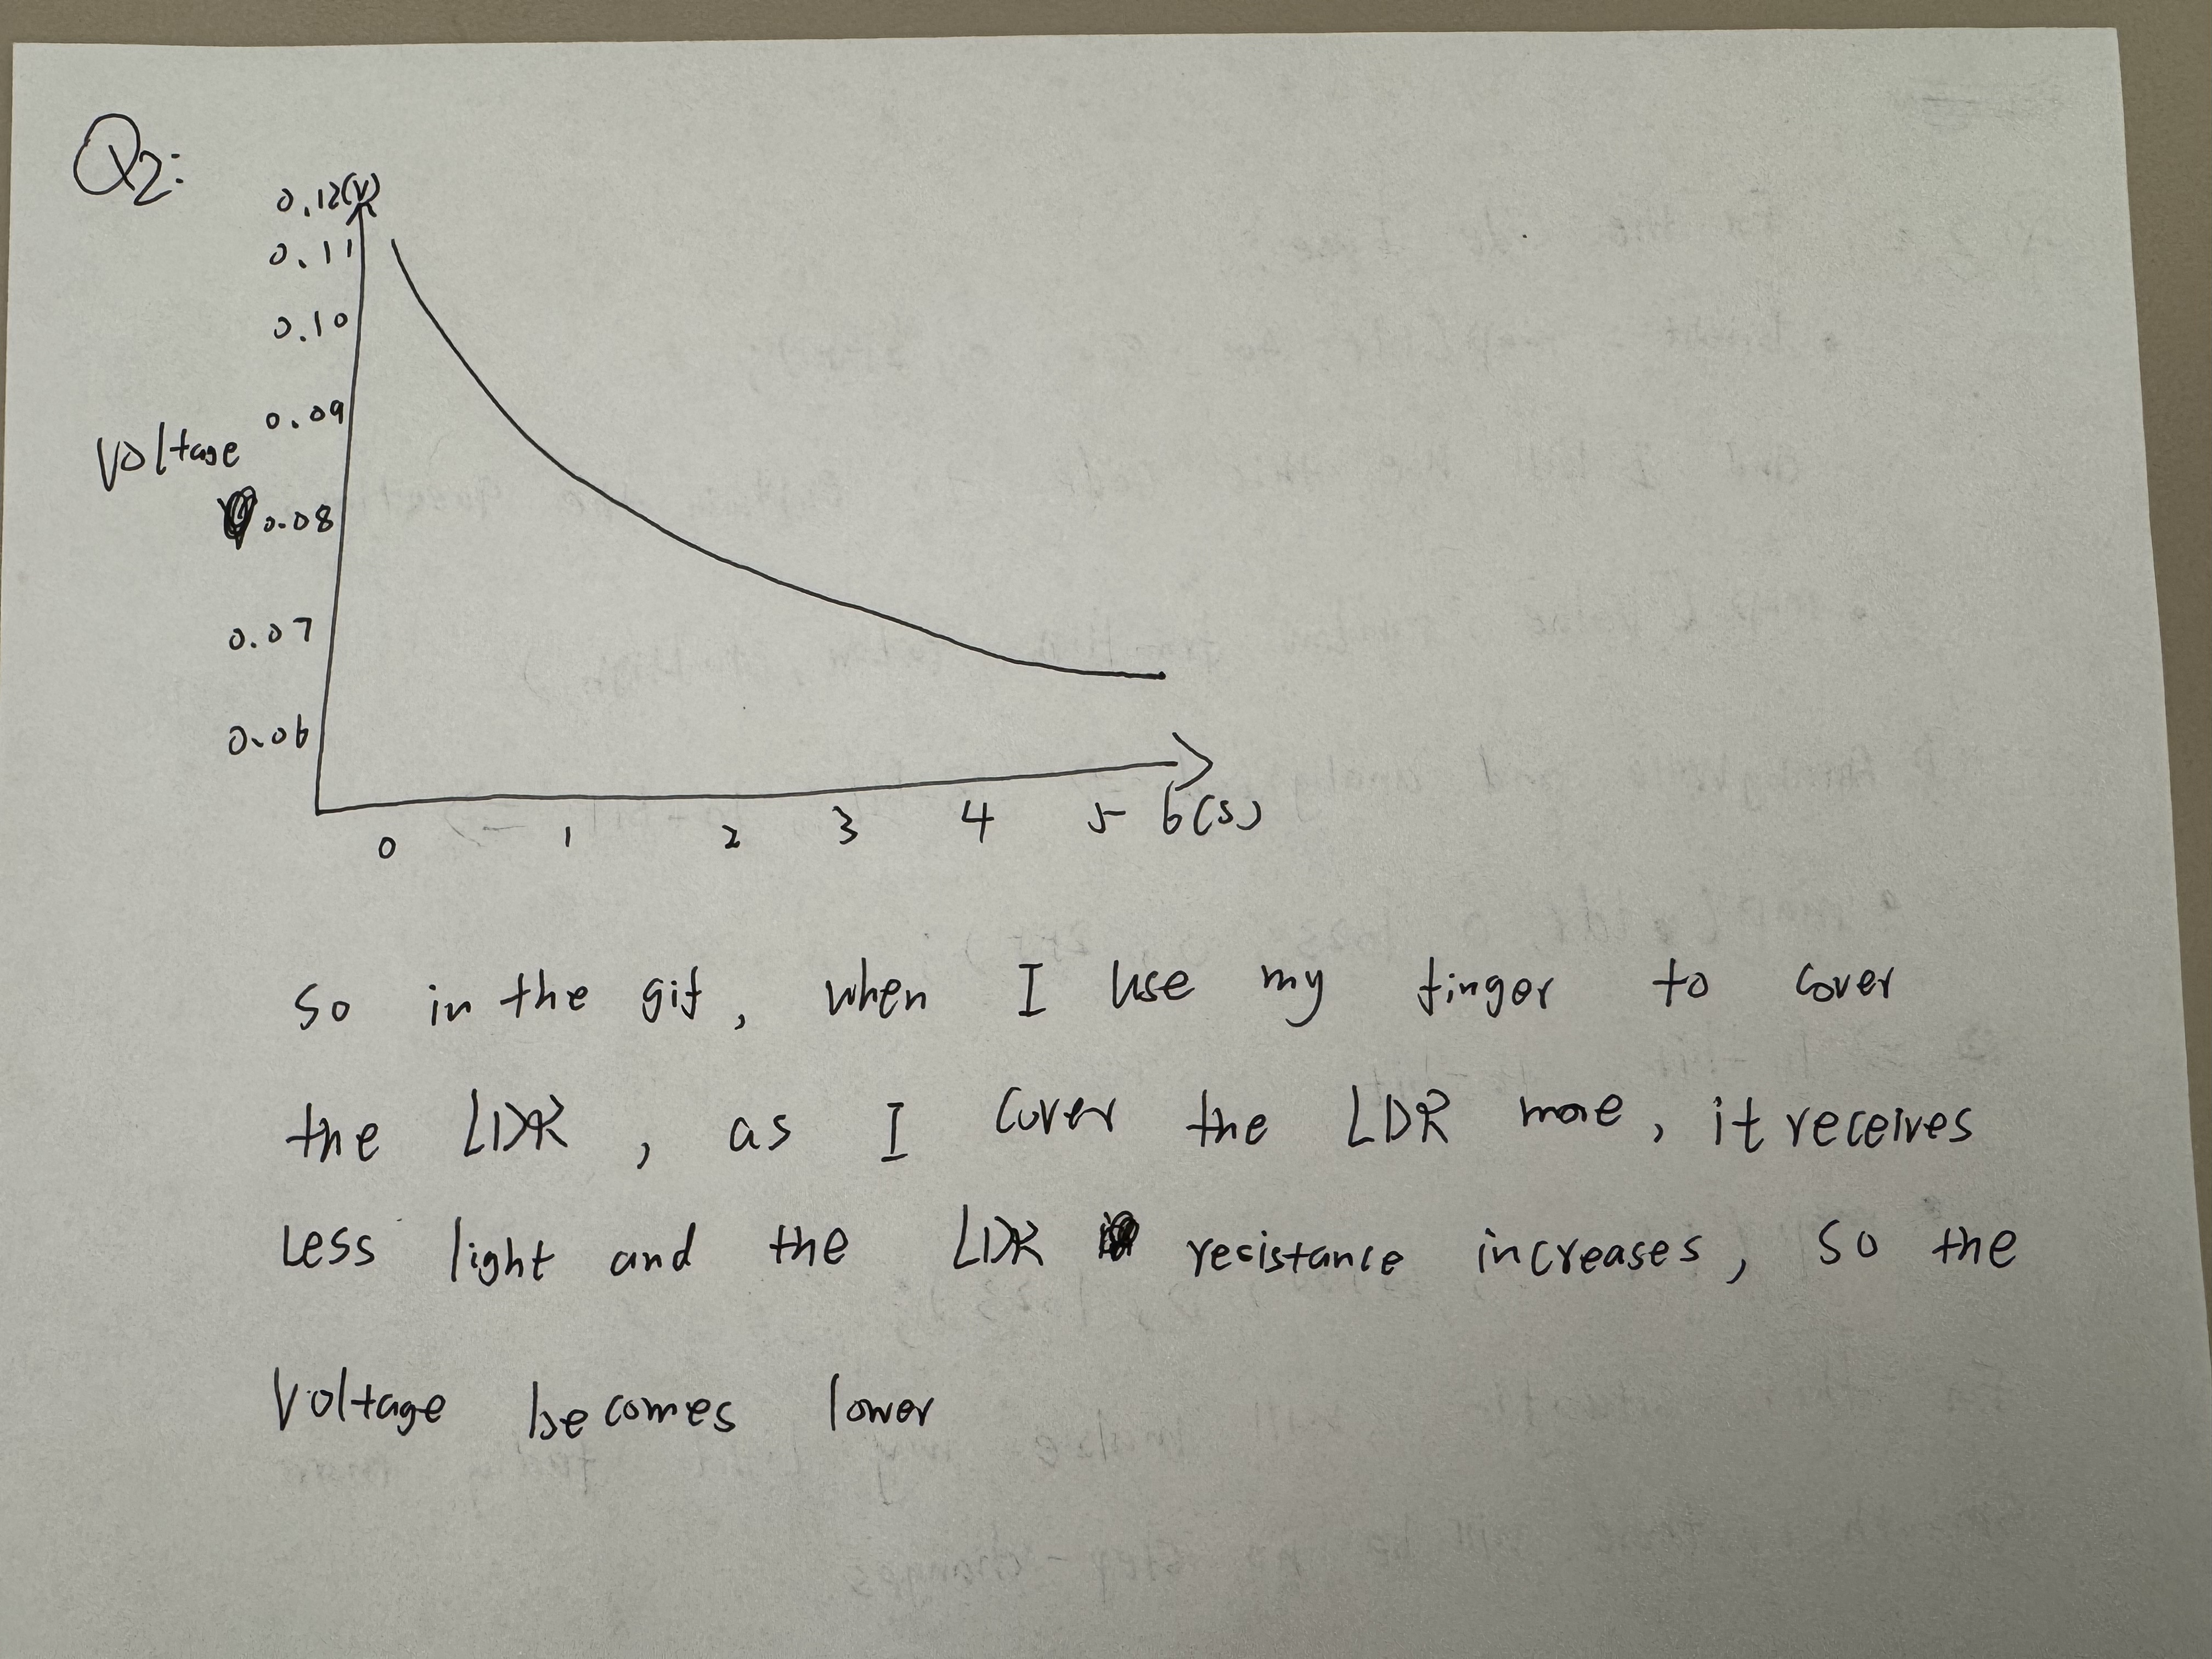 Q2:
0.12(V)
0.11
0.10
0.09
Voltage
0.08
0.07
0.06
0 1 2 3 4 5 6(s)
So in the gif, when I use my finger to cover
the LDR, as I cover the LDR more, it receives
Less light and the LDR resistance increases, so the
Voltage becomes lower